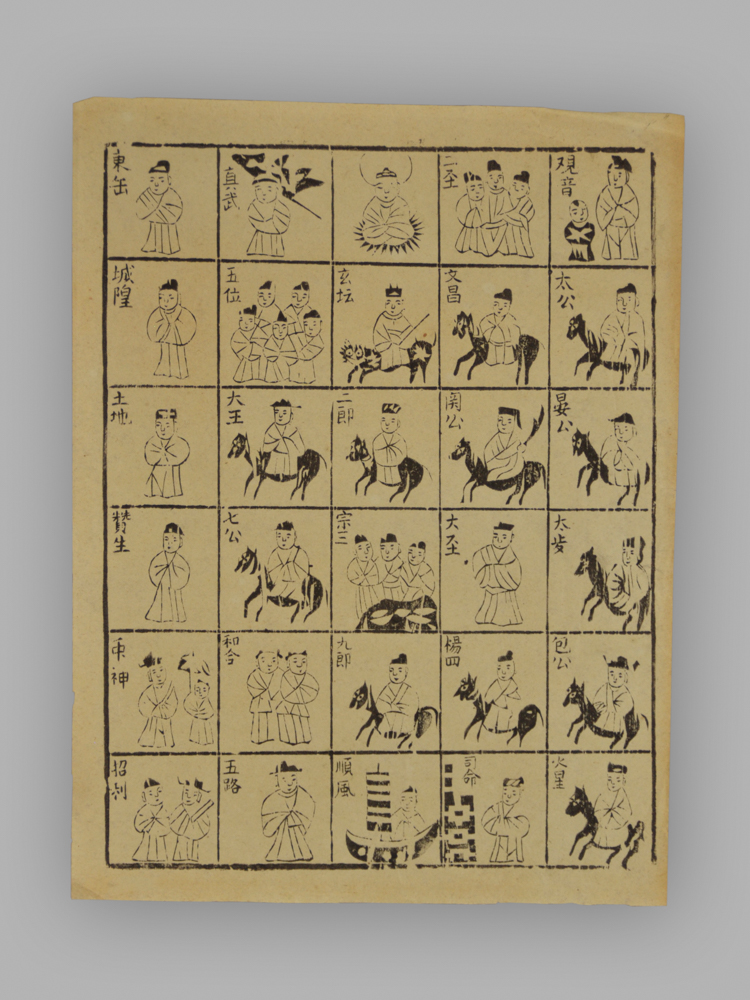 東缶
真武
二圣
覌音
城隍
五位
玄坛
文昌
太公
土地
大王
二郎
関公
晏公
贊生
七公
宗三
大圣
太岁
神
和合
九郎
楊四
包公
招利
五路
順風
司命
火星